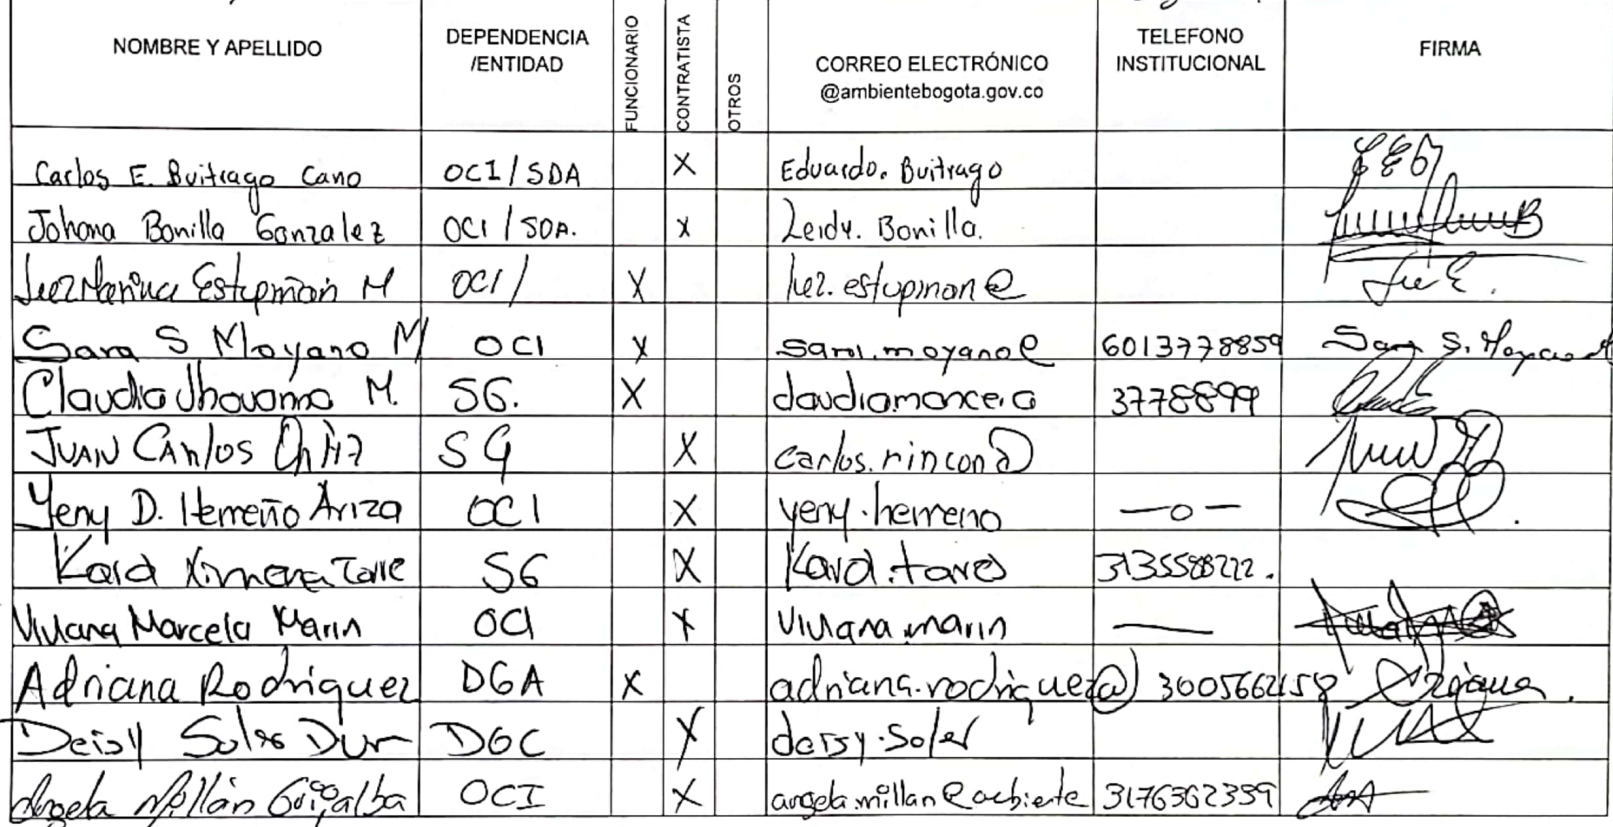 NOMBRE Y APELLIDO DEPENDENCIA /ENTIDAD FUNCIONARIO CONTRATISTA OTROS CORREO ELECTRÓNICO @ambientebogota.gov.co TELEFONO INSTITUCIONAL FIRMA
Carlos E. Buitrago Cano OCI/SDA X Eduardo. Buitrago
Johana Bonilla Gonzalez OCI/SDA. X Leidy. Bonilla.
Luz Marina Estupiñan M OCI/ X luz.estupinan@
Sara S Moyano M OCI X sara.moyano@ 6013778859 Sara S. Moyano
Claudia Jhovanna M. SG. X 3778899
JUAN CARLOS Ortiz SG X carlos.rincon@
Yeny D. Herreño Ariza OCI X yeny.herreno —o—
Ximena Torre SG X 3135588222.
Viviana Marcela Marin OCI X viviana.marin —
Adriana Rodriguez DGA X adriana.rodriguez@ 3005662158 Adriana.
Deisy Soler Dur DGC X deisy.soler
Angela Millán OCI X angela.millan@ 3176362359